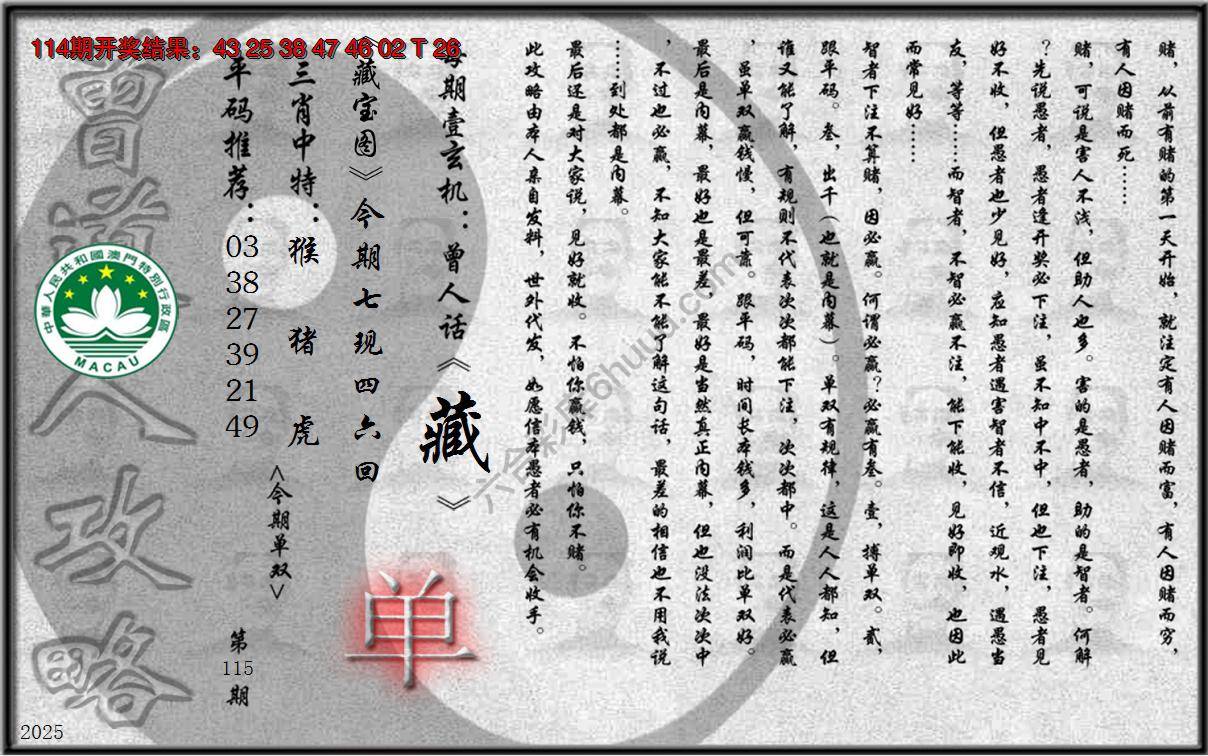 114期开奖结果：43 25 38 47 46 02 T 26
赌，从前有赌的第一天开始，就注定有人因赌而富，有人因赌而穷，
有人因赌而死……
赌，可说是害人不浅，但助人也多。害的是愚者，助的是智者。何解
？先说愚者，愚者逢开奖必下注，虽不知中不中，但也下注，愚者见
好不收，但愚者也少见好，应知愚者遇害智者不信，近观水，遇愚当
友，等等……而智者，不智必赢不注，能下能收，见好即收，也因此
而常见好……
智者下注不算赌，因必赢。何谓必赢？必赢有叁。壹，搏单双。贰，
跟平码。叁，出千（也就是内幕）。单双有规律，这是人人都知，但
谁又能了解，有规则不代表次次都能下注，次次都中。而是代表必赢
，虽单双赢钱慢，但可靠。跟平码，时间长本钱多，利润比单双好。
最后是内幕，最好也是最差，最好是当然真正内幕，但也没法次次中
，不过也必赢，不知大家能不能了解这句话，最差的相信也不用我说
……到处都是内幕。
最后还是对大家说，见好就收。不怕你赢钱，只怕你不赌。
此攻略由本人亲自发料，世外代发，如愿信本愚者必有机会收手。
每期壹玄机：曾人话《藏》
《藏宝图》今期七现四六回
三肖中特：猴 猪 虎
<今期单双>
单
平码推荐：03 38 27 39 21 49
第115期
曾道人攻略
中華人民共和國澳門特別行政區
MACAU
六合彩库6huuu.com
2025